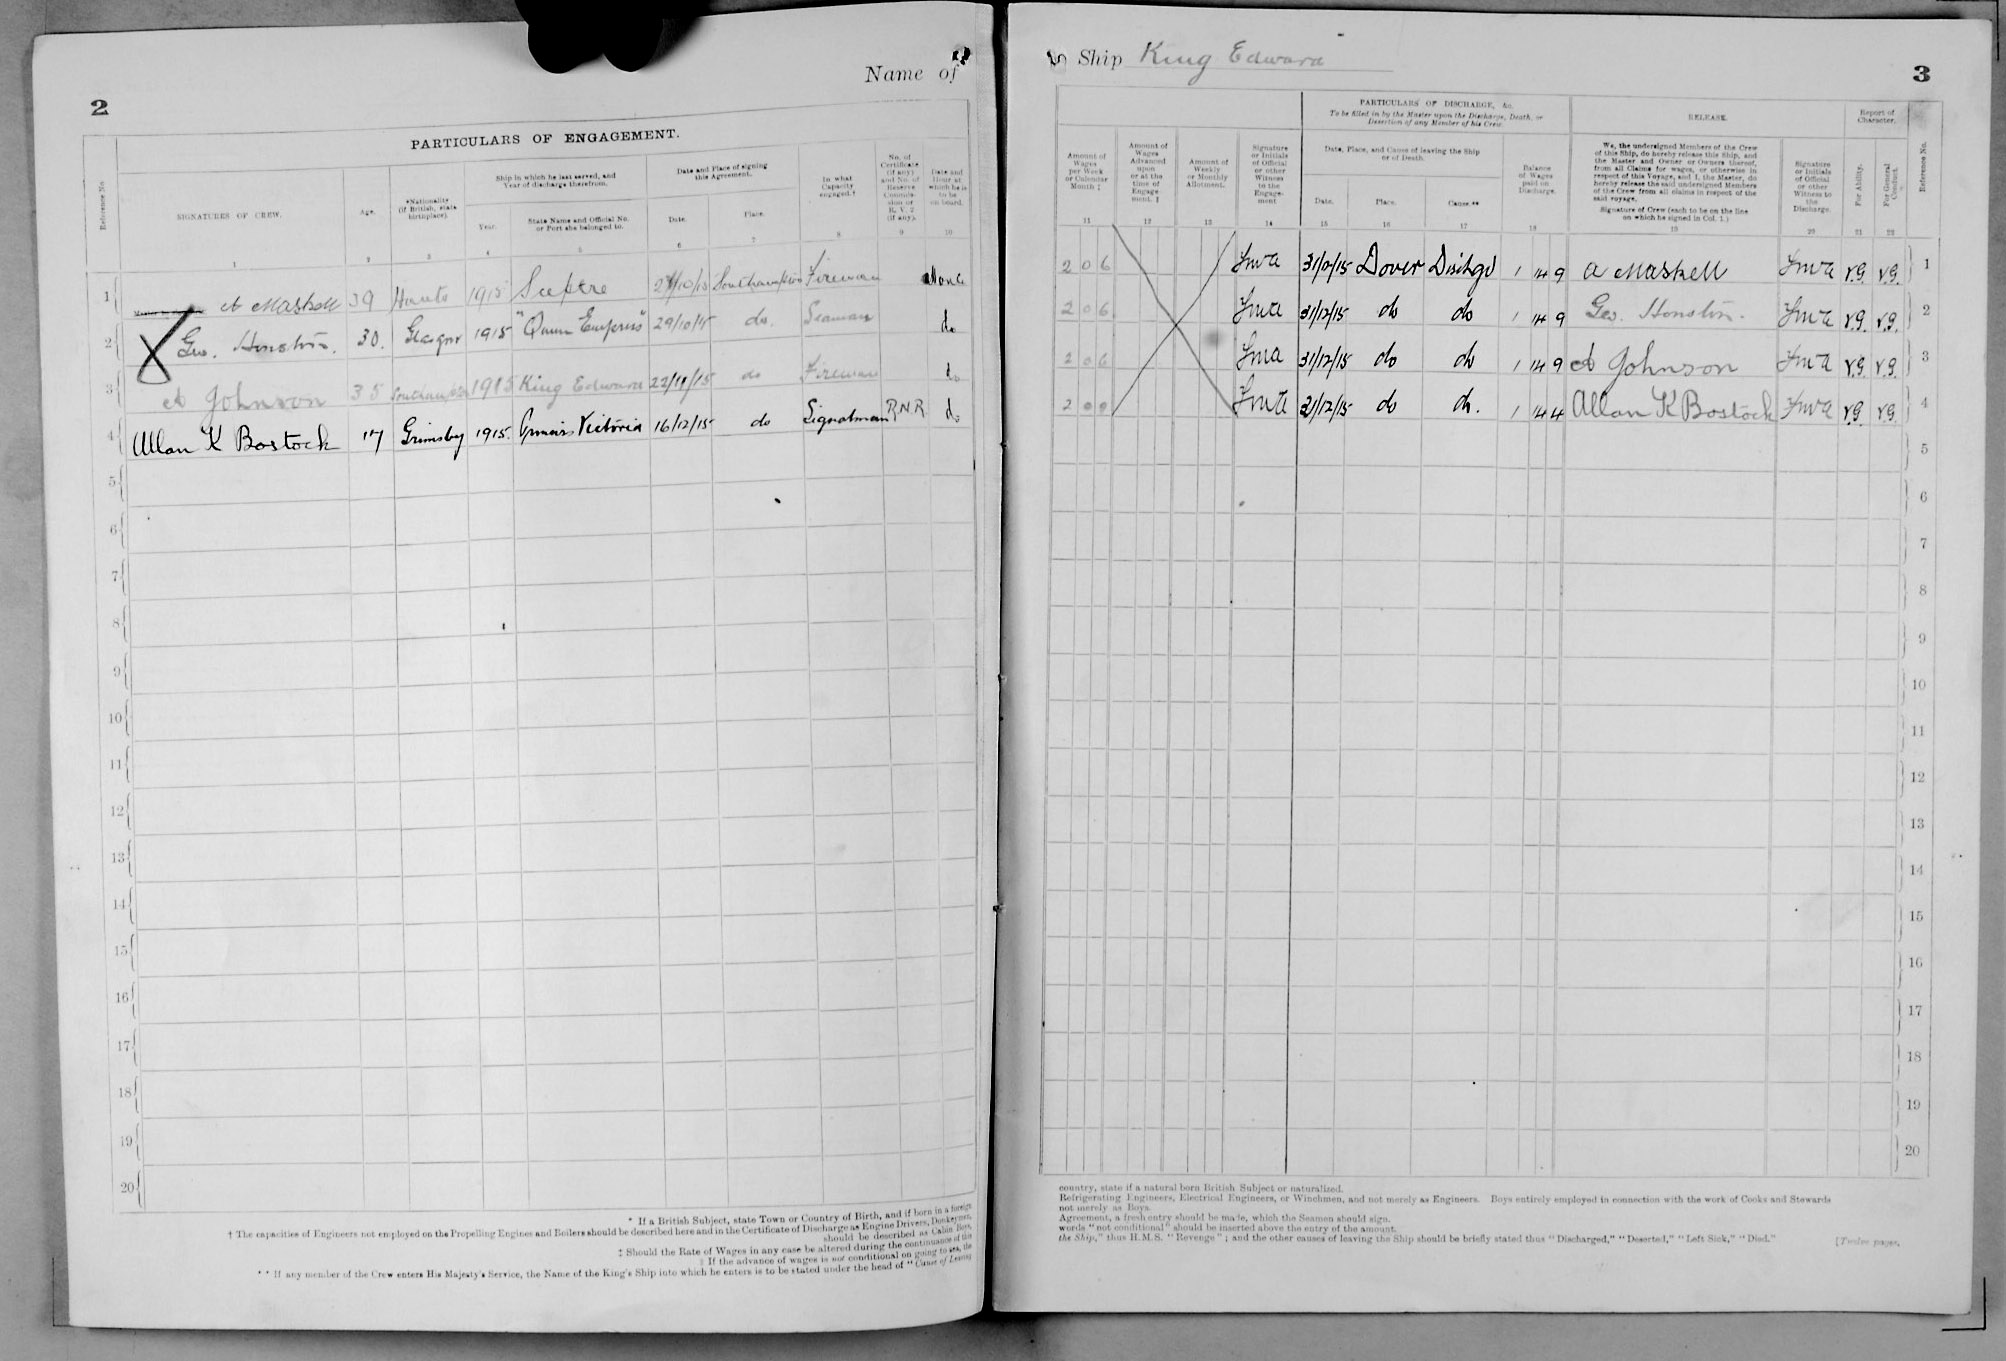 2
Name of
PARTICULARS OF ENGAGEMENT.
Reference No.
SIGNATURES OF CREW.
Age.
*Nationality (if British, state birthplace).
Ship in which he last served, and Year of discharge therefrom.
Year.
State Name and Official No. or Port she belonged to.
Date and Place of signing this Agreement.
Date.
Place.
In what Capacity engaged.†
No. of Certificate (if any) and No. of Reserve Commission or R.V. 2 (if any).
Date and Hour at which he is to be on board.
1 2 3 4 5 6 7 8 9 10
1 A Maskell 39 Hants 1915 Sceptre 29/10/15 Southampton Fireman At once
2 Geo. Houston. 30. Glasgow 1915 "Queen Empress" 29/10/15 do. Seaman do
3 A Johnson 35 Southampton 1915 King Edward 22/11/15 do Fireman do
4 Allan K Bostock 17 Grimsby 1915. Princess Victoria 16/12/15 do Signalman R.N.R do
5
6
7
8
9
10
11
12
13
14
15
16
17
18
19
20
* If a British Subject, state Town or Country of Birth, and if born in a foreign
† The capacities of Engineers not employed on the Propelling Engines and Boilers should be described here and in the Certificate of Discharge as Engine Drivers, Donkeymen,
should be described as Cabin Boys,
‡ Should the Rate of Wages in any case be altered during the continuance of this
If the advance of wages is not conditional on going to sea, the
** If any member of the Crew enters His Majesty's Service, the Name of the King's Ship into which he enters is to be stated under the head of "Cause of Leaving
Ship King Edward
3
Amount of Wages per Week or Calendar Month ‡
Amount of Wages Advanced upon or at the time of Engagement. ‡
Amount of Weekly or Monthly Allotment.
Signature or Initials of Official or other Witness to the Engagement
PARTICULARS OF DISCHARGE, &c.
To be filled in by the Master upon the Discharge, Death, or
Desertion of any Member of his Crew.
Date, Place, and Cause of leaving the Ship
or of Death.
Date.
Place.
Cause.**
Balance of Wages paid on Discharge.
RELEASE.
We, the undersigned Members of the Crew
of this Ship, do hereby release this Ship, and
the Master and Owner or Owners thereof,
from all Claims for wages, or otherwise in
respect of this Voyage, and I, the Master, do
hereby release the said undersigned Members
of the Crew from all claims in respect of the
said voyage.
Signature of Crew (each to be on the line
on which he signed in Col. 1.)
Signature or Initials of Official or other Witness to the Discharge.
Report of Character.
For Ability.
For General Conduct.
Reference No.
11 12 13 14 15 16 17 18 19 20 21 22
2 0 6 31/12/15 Dover Dischgd 1 14 9 A Maskell V.G. V.G. 1
2 0 6 31/12/15 do do 1 14 9 Geo. Houston. V.G. V.G. 2
2 0 6 31/12/15 do do 1 14 9 A Johnson V.G. V.G. 3
2 0 0 31/12/15 do do. 1 14 4 Allan K Bostock V.G. V.G. 4
5
6
7
8
9
10
11
12
13
14
15
16
17
18
19
20
country, state if a natural born British Subject or naturalized.
Refrigerating Engineers, Electrical Engineers, or Winchmen, and not merely as Engineers. Boys entirely employed in connection with the work of Cooks and Stewards
not merely as Boys.
Agreement, a fresh entry should be made, which the Seamen should sign.
words "not conditional" should be inserted above the entry of the amount.
the Ship," thus H.M.S. "Revenge"; and the other causes of leaving the Ship should be briefly stated thus "Discharged," "Deserted," "Left Sick," "Died."
[Twelve pages.